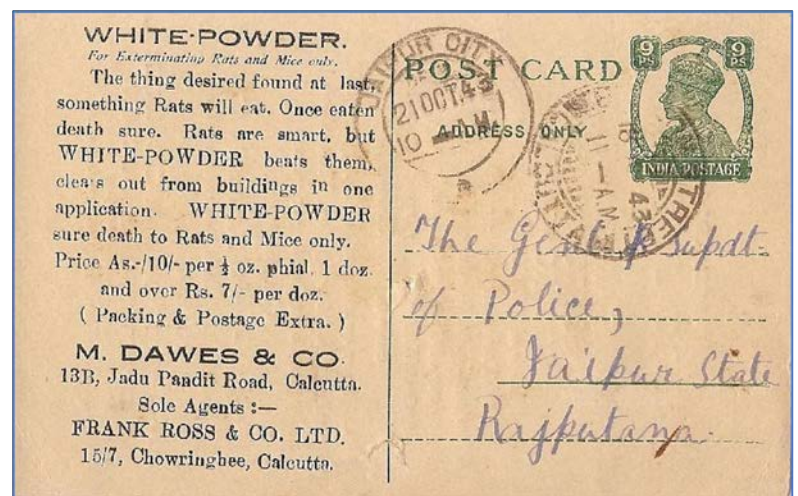 WHITE-POWDER.
For Exterminating Rats and Mice only.
The thing desired found at last,
something Rats will eat. Once eaten
death sure. Rats are smart, but
WHITE-POWDER beats them,
clears out from buildings in one
application. WHITE-POWDER
sure death to Rats and Mice only.
Price As.-/10/- per ½ oz. phial, 1 doz.
and over Rs. 7/- per doz.
( Packing & Postage Extra. )
M. DAWES & CO.
13B, Jadu Pandit Road, Calcutta.
Sole Agents :—
FRANK ROSS & CO. LTD.
15/7, Chowringhee, Calcutta.
JAIPUR CITY
21 OCT. 43
10 A.M.
POST CARD
ADDRESS ONLY
9 PS 9 PS
INDIA POSTAGE
11 - A.M.
43
The Genl Supdt.
of Police,
Jaipur State
Rajputana.